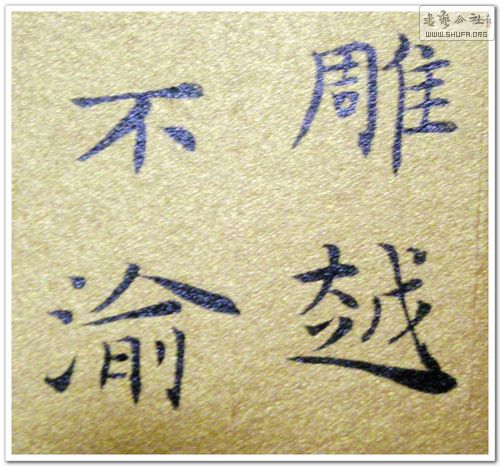 雕越
不渝
书艺公社
WWW.SHUFA.ORG